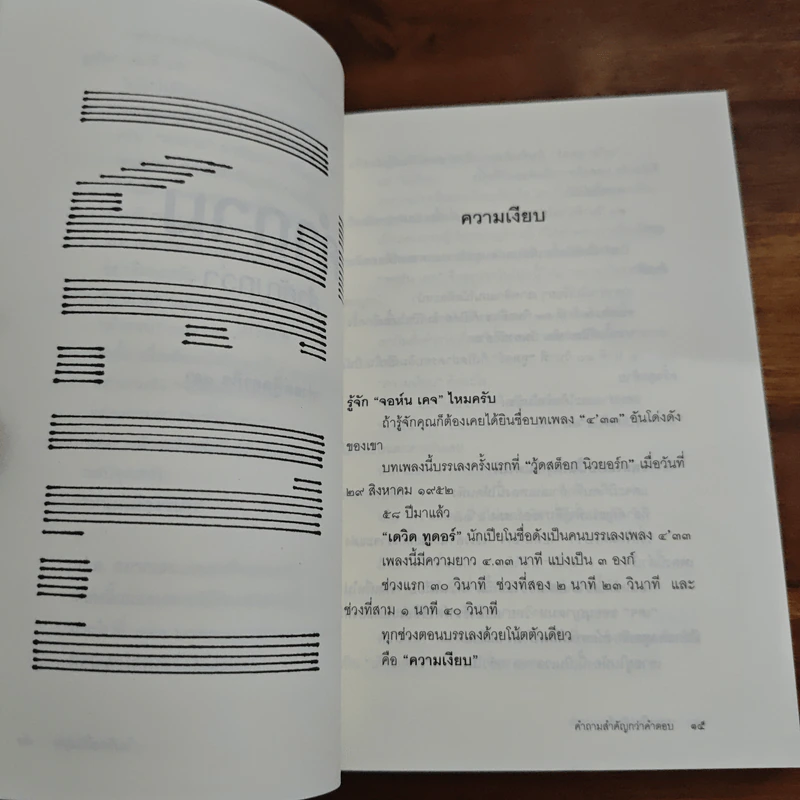 ความเงียบ
รู้จัก “จอห์น เคจ” ไหมครับ
ถ้ารู้จักคุณก็ต้องเคยได้ยินชื่อบทเพลง “๔'๓๓” อันโด่งดัง
ของเขา
บทเพลงนี้บรรเลงครั้งแรกที่ “วู้ดสต็อก นิวยอร์ก” เมื่อวันที่
๒๙ สิงหาคม ๑๙๕๒
๕๘ ปีมาแล้ว
“เดวิด ทูดอร์” นักเปียโนชื่อดังเป็นคนบรรเลงเพลง ๔'๓๓
เพลงนี้มีความยาว ๔.๓๓ นาที แบ่งเป็น ๓ องก์
ช่วงแรก ๓๐ วินาที ช่วงที่สอง ๒ นาที ๒๓ วินาที และ
ช่วงที่สาม ๑ นาที ๔๐ วินาที
ทุกช่วงตอนบรรเลงด้วยโน้ตตัวเดียว
คือ “ความเงียบ”
คำถามสำคัญกว่าคำตอบ ๑๕